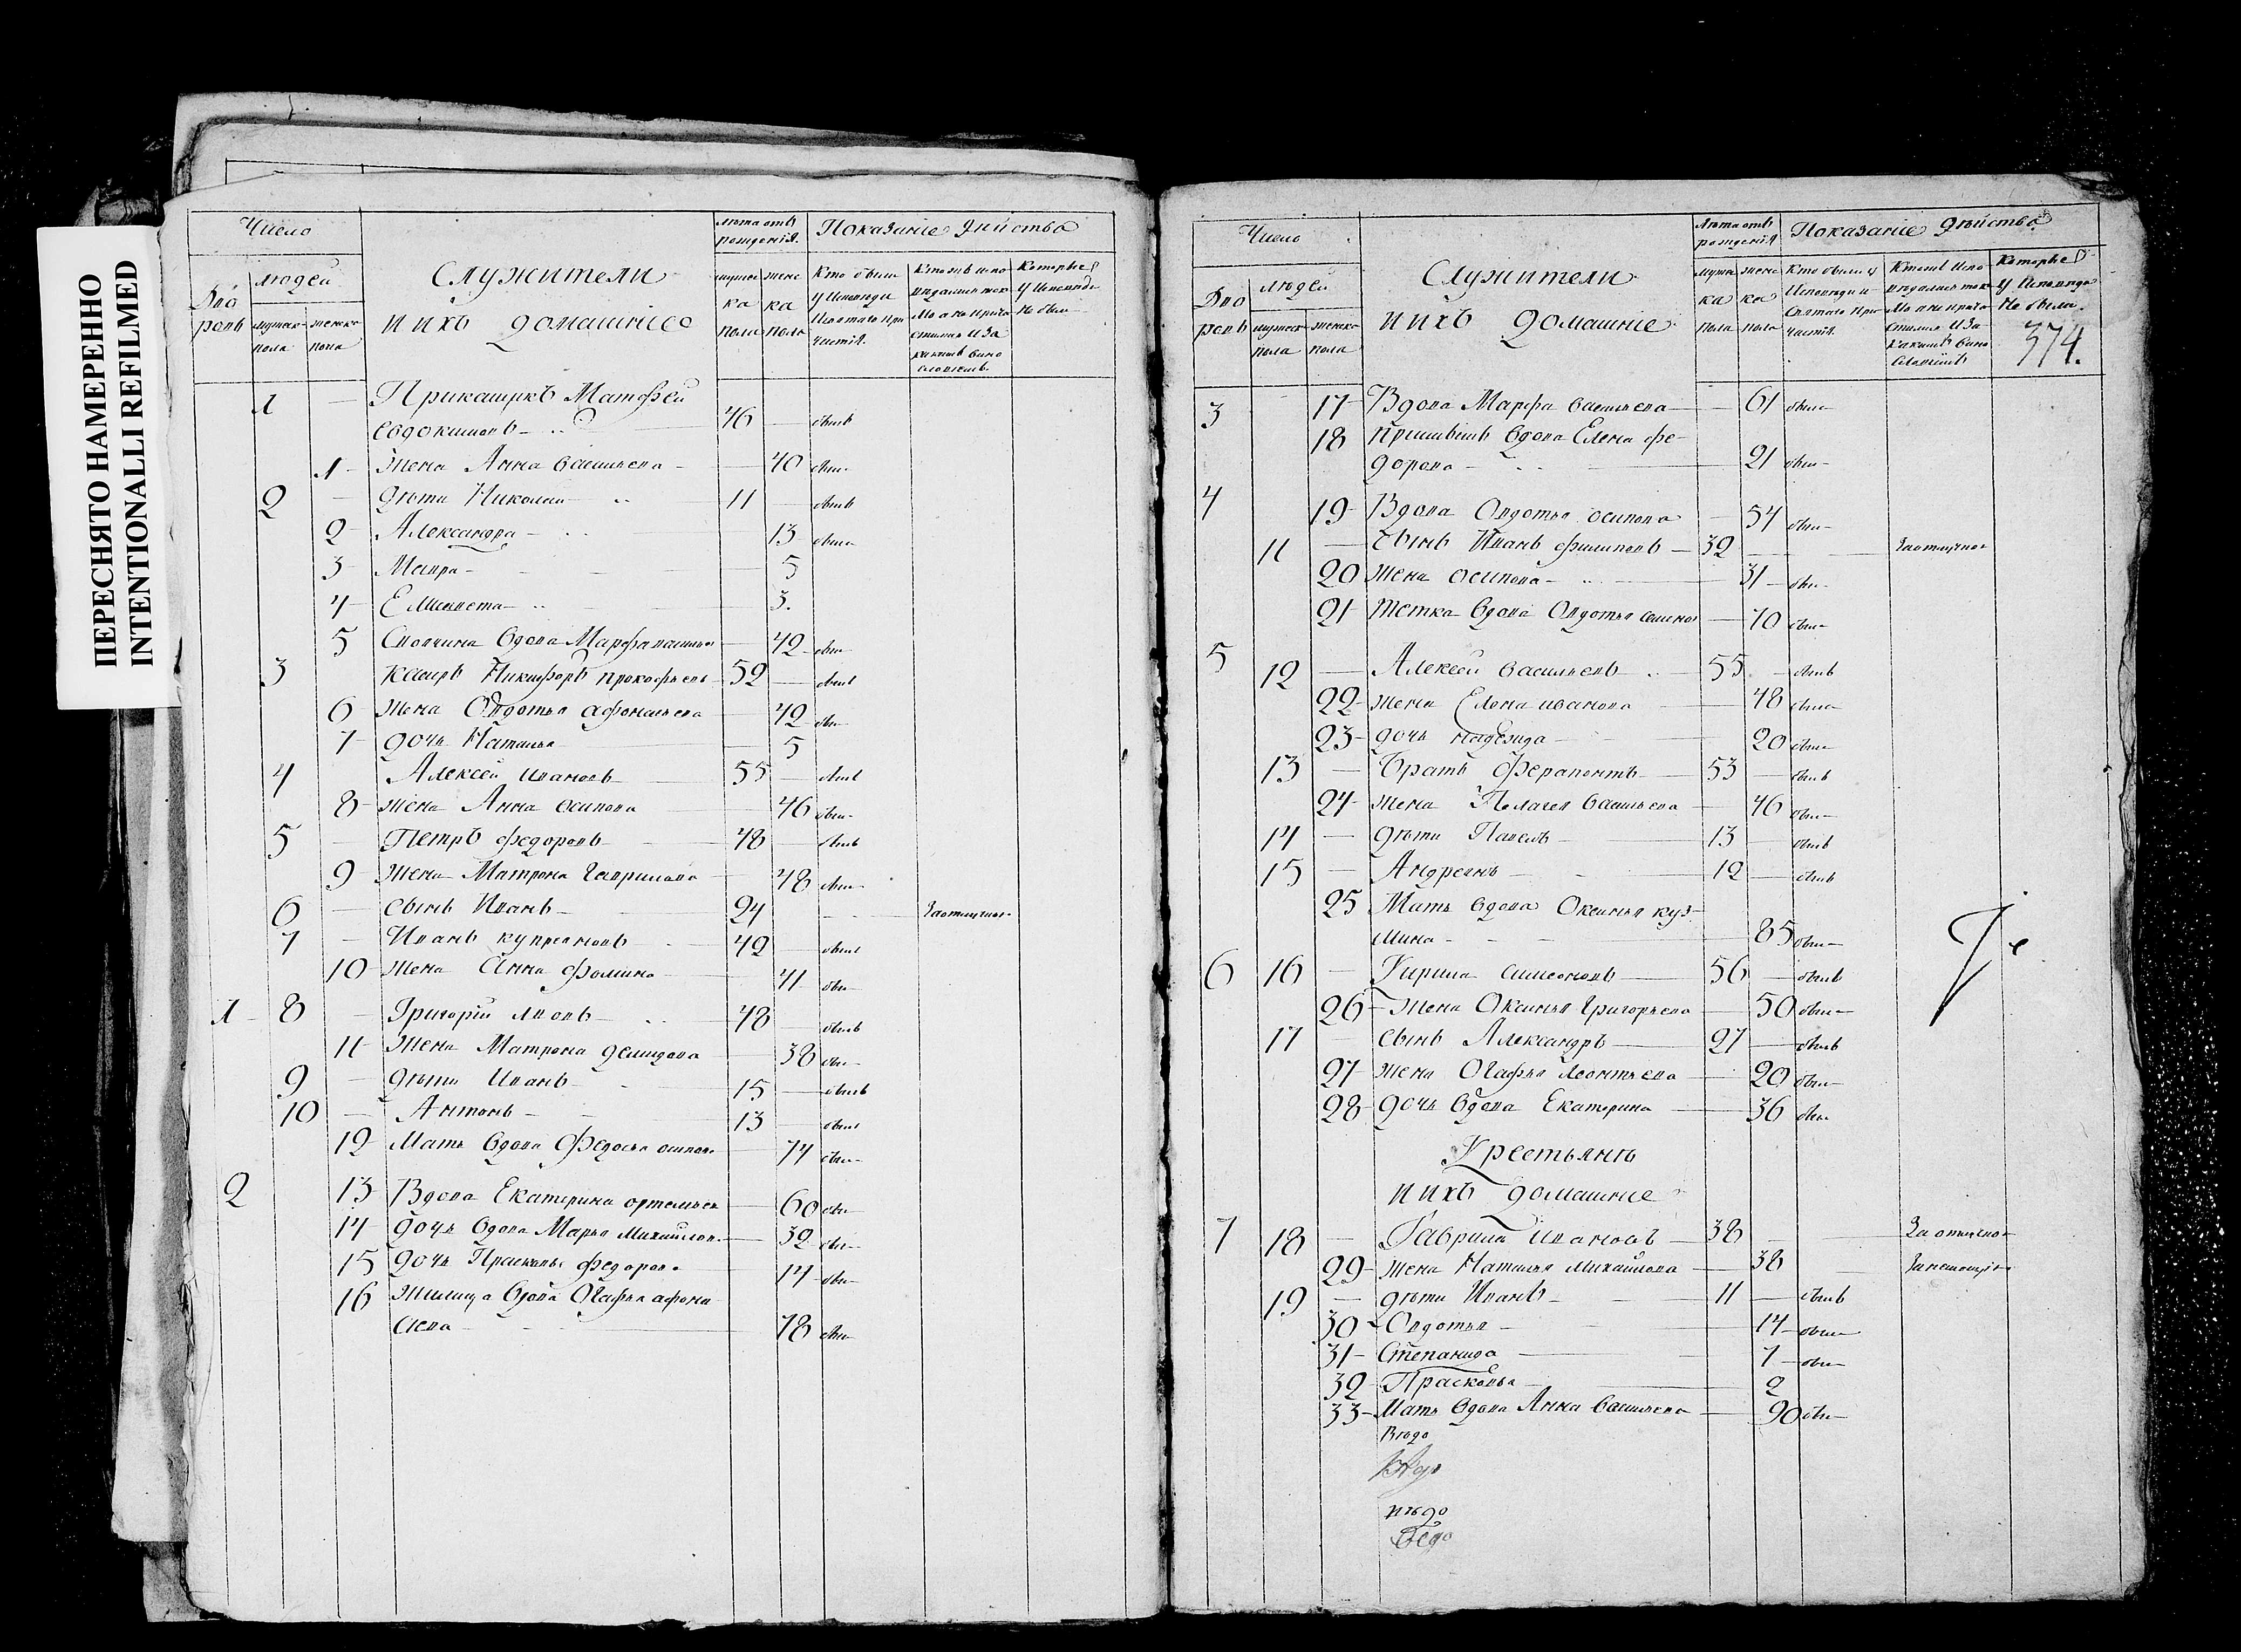 ПЕРЕСНЯТО НАМЕРЕННО
INTENTIONALLI REFILMED
Число
Дво
ровъ
людей
мужеска
пола
женска
пола
Служители
и ихъ домашнiе
Лѣта отъ
рожденiя.
мужес
ка
пола
женс
ка
пола
Показанiе дѣйства
Кто были
у исповѣди
и святаго при
частiя.
Кто жъ испо
вѣдался ток
мо а не прича
стился и за
какимъ вино
словiемъ
Которые
у исповѣди
не были
1 — Прикащикъ Матфей
Евдокимовъ — 46 — былъ
1 — Жена Анна Васильева — 40 была
2 — дѣти Николай 11 — былъ
2 — Александра — 13 — была
3 — Мавра — 5
4 — Елисавета — 3.
5 Своячина вдова Марфа — 42 — была
3 Никифоръ Прокофьевъ 52 — былъ
6 Жена Овдотья Афонасьева 42 была
7 — дочь Наталья — 5
4 Алексей Ивановъ — 55 — былъ
8 — жена Анна Осипова 46 была
5 — Петръ Федоровъ — 48 — былъ
9 Жена Матрона Гаврилова — 48 была
6 — сынъ Иванъ — 24 За отлучкою
7 — Иванъ Купреяновъ — 42 — былъ
10 — Жена Анна Фомина 41 — была
1 — 8 — Григорiй — 48 — былъ
11 — Жена Матрона Демидова — 38 была
9 — дѣти Иванъ — 15 — былъ
10 — Антонъ — 13 — былъ
12 Мать вдова Федосья Осипова — 74 была
2 13 Вдова Екатерина — 60 была
14 дочь вдова Марья Михайлова — 32 была
15 дочь Прасковья Федорова — 14 — была
16 Жилица вдова Огафья Афона
сева — 78 была
Число
Дво
ровъ
людей
мужеска
пола
женска
пола
Служители
и ихъ домашнiе
Лѣта отъ
рожденiя
мужес
ка
пола
женс
ка
пола
Показанiе дѣйства
Кто были у
исповѣди и
святаго при
частiя.
Кто жъ испо
вѣдался ток
мо а не прича
стился и за
какимъ вино
словiемъ
Которые
у исповѣди
не были.
374.
3 17 — Вдова Марфа Васильева — 61 была
18 вдова Елена Фе-
дорова — 21 была
4 19 — Вдова Овдотья Осипова — 54 была
11 — Сынъ Иванъ Филиповъ — 32 — За отлучкою
20 Жена Осипова — 31 — была
21 Тетка вдова Овдотья — 70 была
5 12 — Алексей Васильевъ — 55 — былъ
22 — жена Елена Иванова — 48 была
23 — дочь Надезида — 20 была
13 — Братъ Ферапонтъ — 53 — былъ
24 — жена Пелагея Васильева — 46 была
14 — дѣти Павелъ — 13 — былъ
15 — Андреянъ — 12 — былъ
25 Мать вдова Оксинья Куз-
мина — 85 была
6 16 — Кирила Симеоновъ — 56 — былъ
26 — Жена Оксинья Григорьева — 50 была
17 — сынъ Александръ — 27 — былъ
27 — жена Огафья Леонтьева — 20 была
28 — дочь вдова Екатерина — 36 была
Крестьянъ
и ихъ домашнiе
7 18 — Гаврила Ивановъ — 38 — За отлучкою
29 — жена Наталья Михайлова — 38
19 — дѣти Иванъ — 11 — былъ
30 — Овдотья — 14 — была
31 — Степанида — 7 — была
32 — Прасковья — 2
33 — Мать вдова Анна Васильева — 90 была